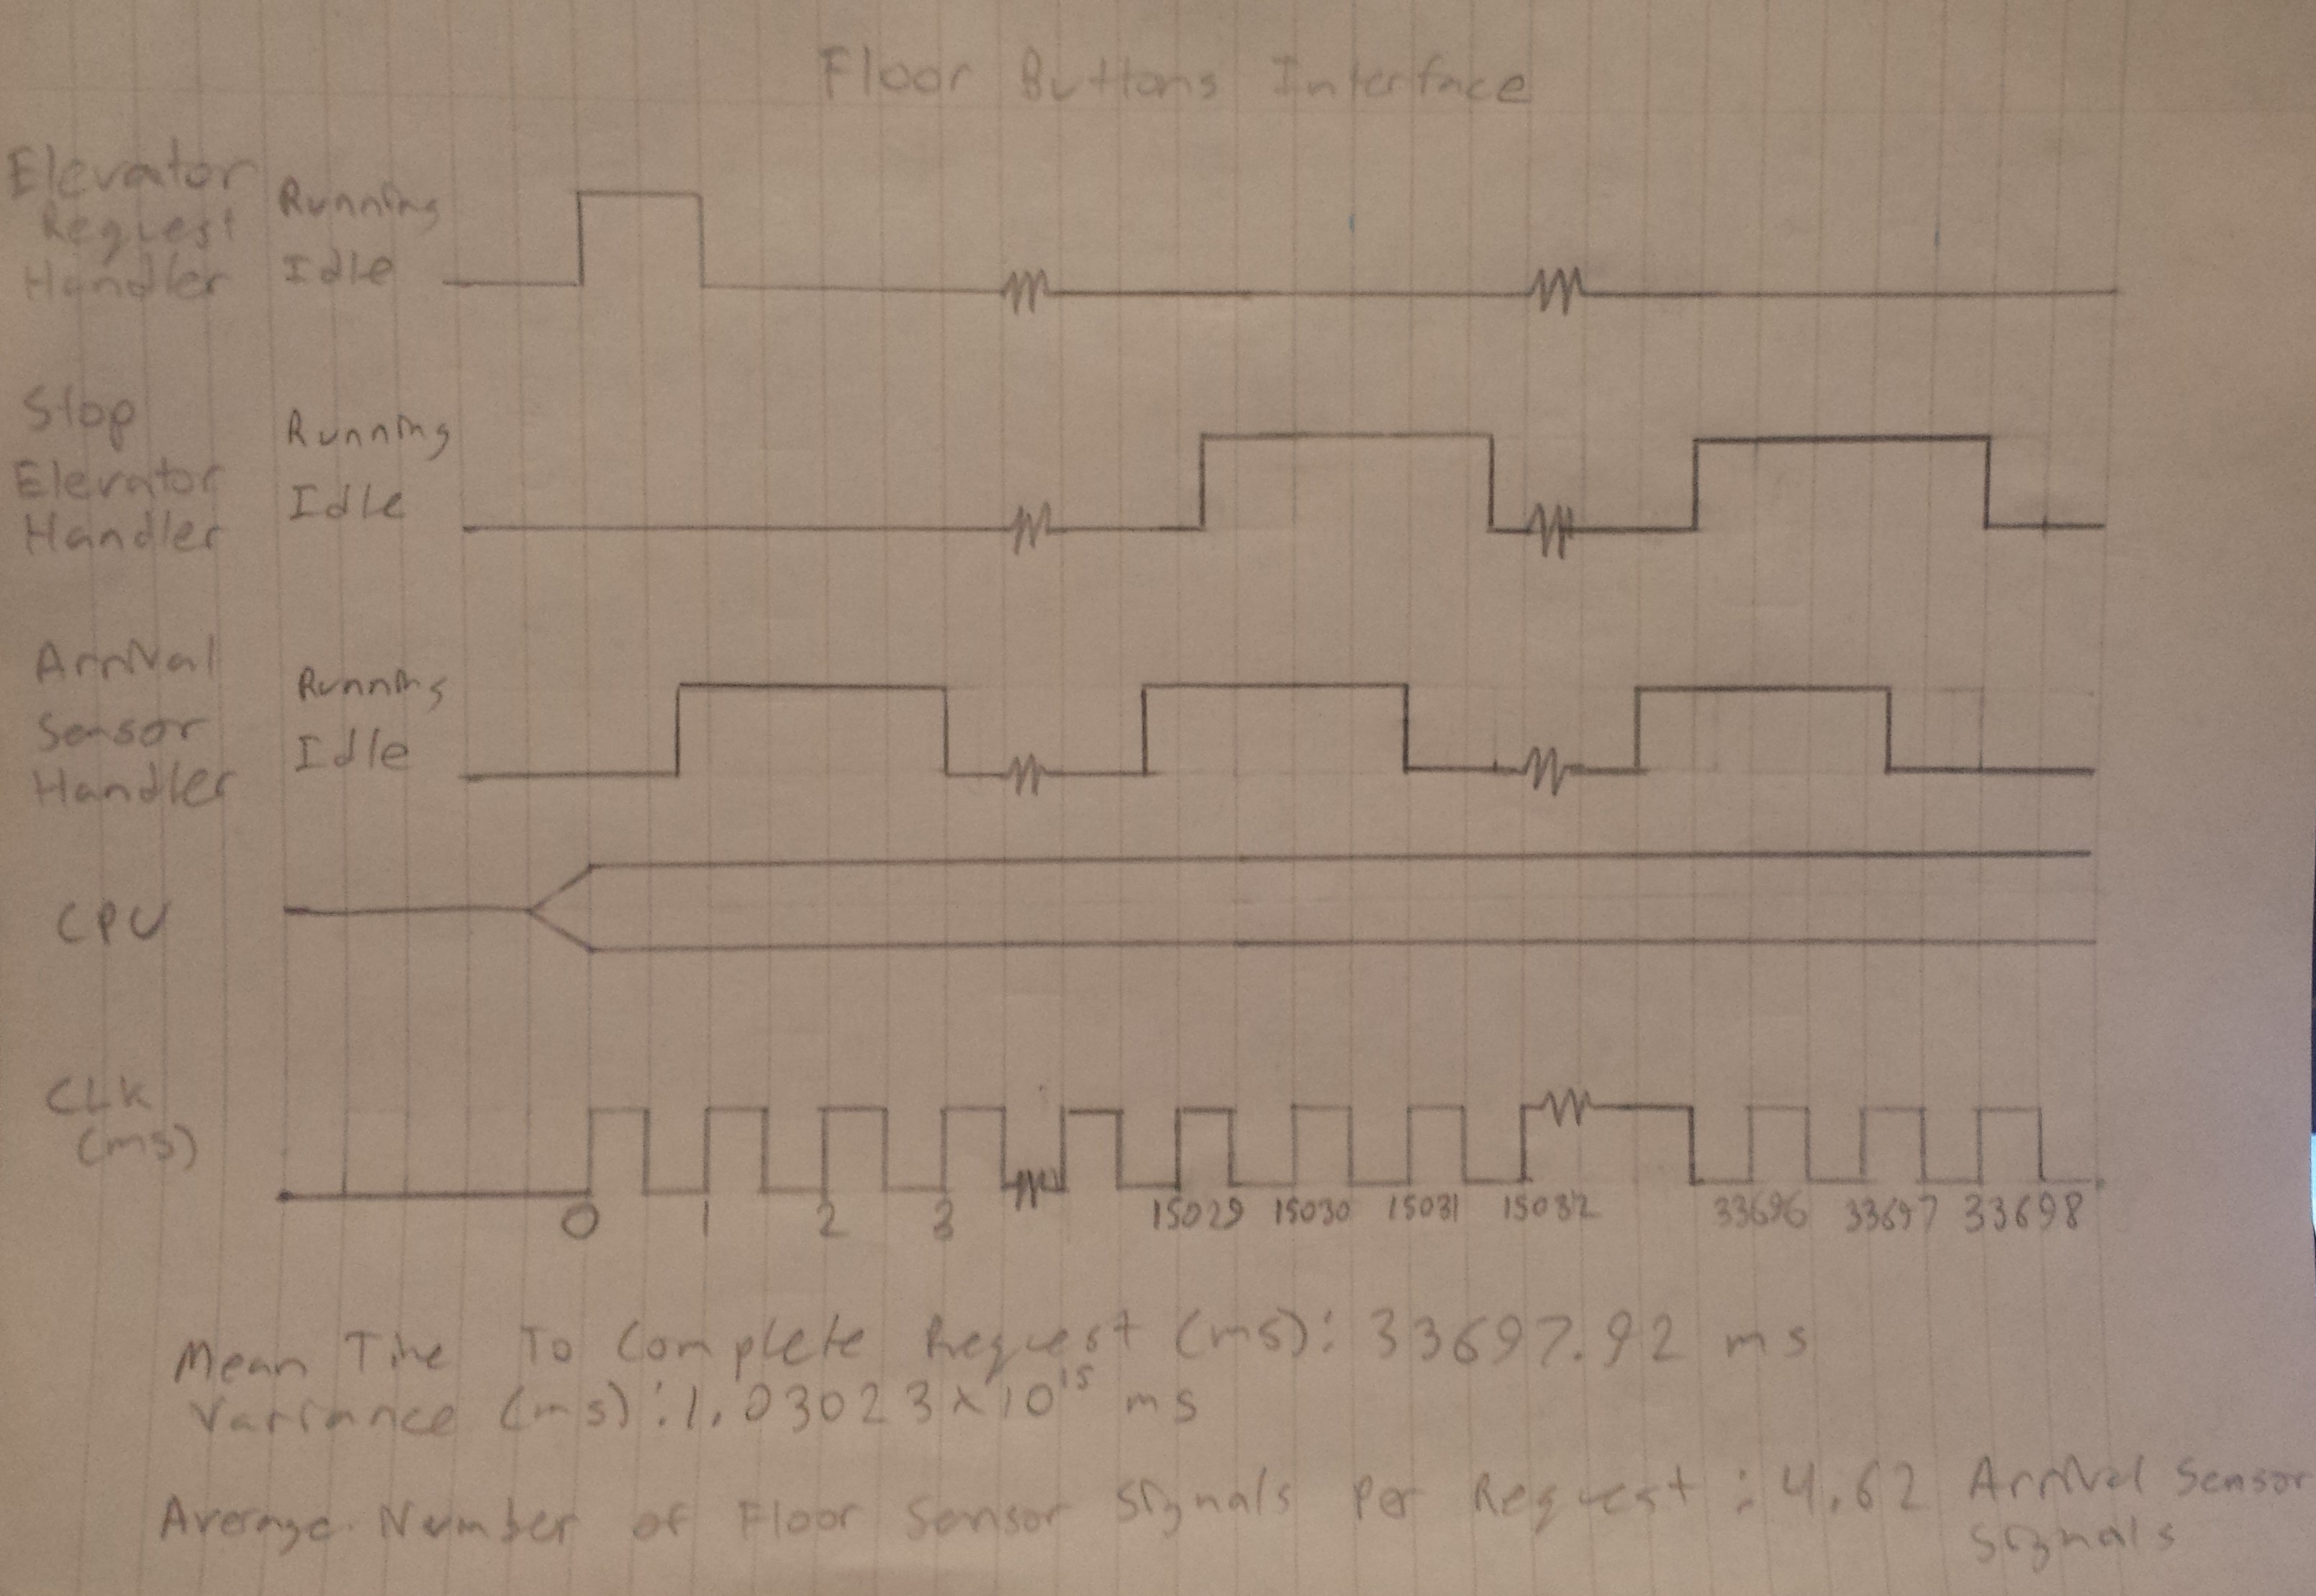 Floor Buttons Interface
Elevator
Request
Handler
Running
Idle
Stop
Elevator
Handler
Running
Idle
Arrival
Sensor
Handler
Running
Idle
CPU
CLK
(ms)
0 1 2 3 15029 15030 15031 15032 33696 33697 33698
Mean Time To Complete Request (ms): 33697.92 ms
Variance (ms): 1.03023x10^15 ms
Average Number of Floor Sensor Signals Per Request : 4.62 Arrival Sensor
Signals